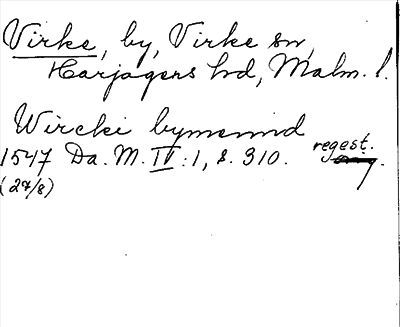 Virke, by, Virke sn,
Harjagers hd, Malm. l.
Wircki bymennd
regest.
1547 Da. M. IV:1, s. 310.
(27/8)